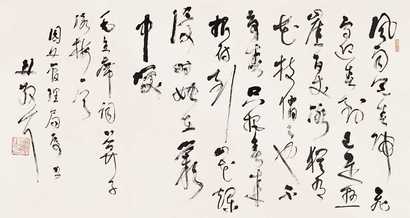 风雨送春归飞
雪迎春到已是悬
崖百丈冰犹有
花枝俏俏也不
争春只把春来
报待到山花烂
漫时她在丛
中笑
毛主席词卜算子
咏梅一首
园林管理局
林散